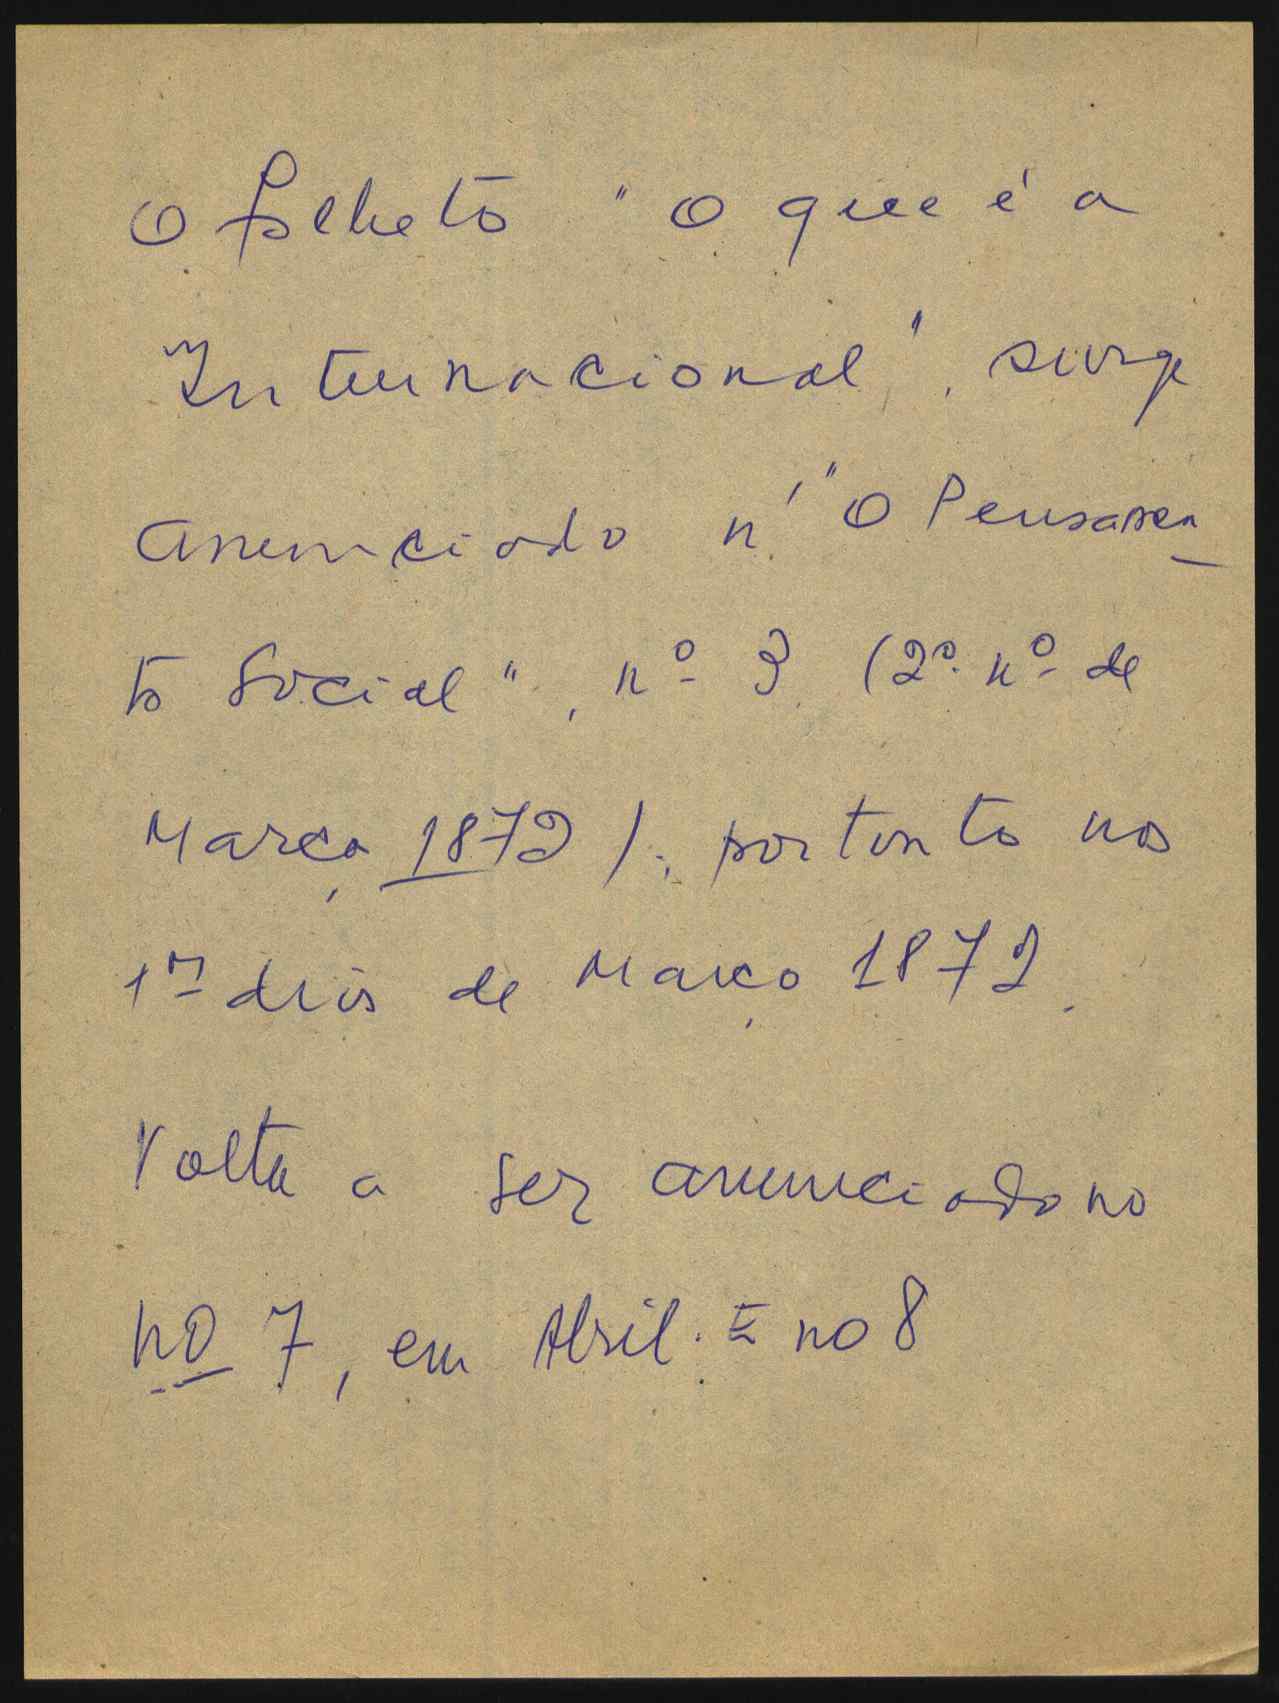 O folheto "O que é a
Internacional", surge
anunciado n'"O Pensamen-
to Social", nº 3 (2º nº de
Março 1872), portanto nos
1ºs dias de Março 1872.
Volta a ser anunciado no
nº 7, em Abril. E no 8